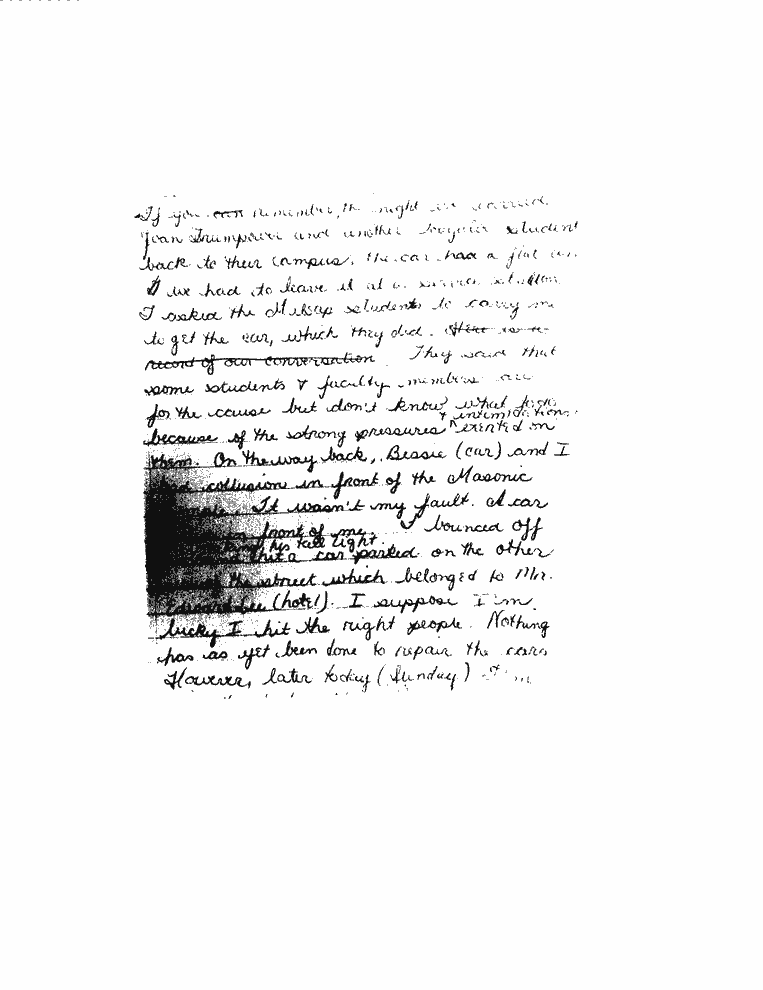 If you can remember, the night we carried
Joan Trumpower and another student
back to their campus, the car had a flat
& we had to leave it at a service station
I asked the Milsap students to carry me
to get the car, which they did. Here is a
record of our conversation. They said that
some students & faculty members are
for the cause but don't know what to do
& intimidations
because of the strong pressures ^ exerted on
them. On the way back, Bessie (car) and I
had collusion in front of the Masonic
It wasn't my fault. A car
in front of me. I bounced off
his tail light.
hit a car parked on the other
of the street which belonged to Mr.
Edward Lee (hotel). I suppose I'm
lucky I hit the right people. Nothing
has as yet been done to repair the cars
However, later today (Sunday) I'm